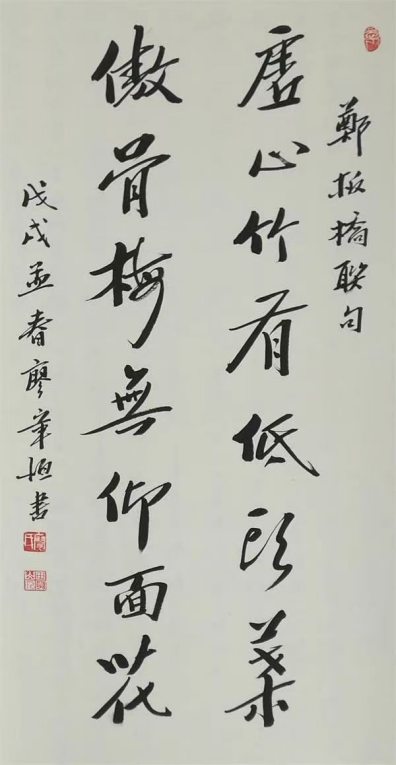 鄭板橋聯句
虚心竹有低頭葉
傲骨梅無仰面花
戊戌孟春廖章恒書